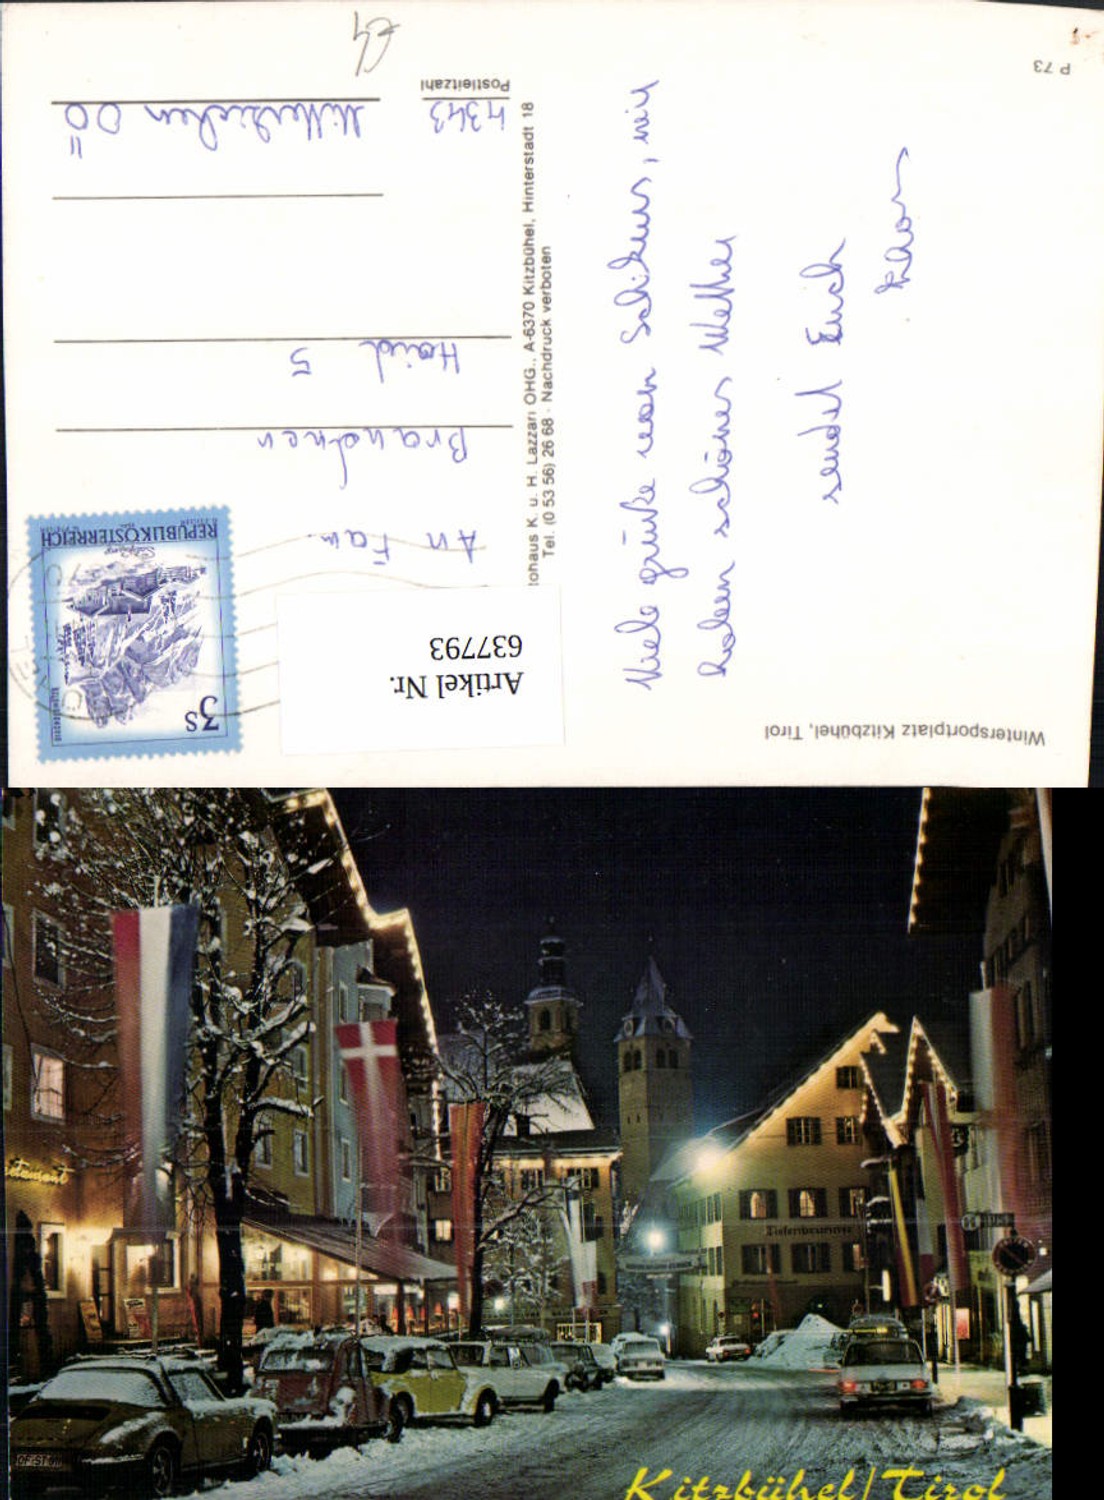 P 73
Wintersportplatz Kitzbühel, Tirol
Viele grüße vom Schikurs, wir
haben schönes Wetter
sendet Euch
tohaus K. u. H. Lazzari OHG., A-6370 Kitzbühel, Hinterstadt 18
Tel. (0 53 56) 26 68 - Nachdruck verboten
REPUBLIK ÖSTERREICH
3 S
Artikel Nr.
637793
An Fam.
Brandner
Haid 5
4343
Mitterkirchen OÖ
Postleitzahl
Restaurant
Tiefenbrunner
Kitzbühel/Tirol